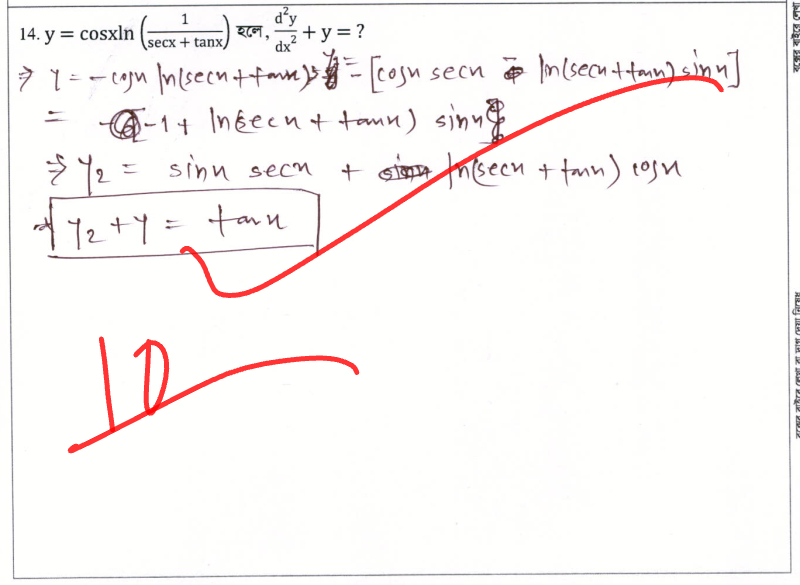 14. y = cosxln (1/(secx + tanx)) হলে, d²y/dx² + y = ?
⇒ y = -cosx ln(secx + tanx) ⇒ y₁ = -[cosx secx - ln(secx + tanx) sinx]
= -1 + ln(secx + tanx) sinx
⇒ y₂ = sinx secx + ln(secx + tanx) cosx
⇒ y₂ + y = tanx
10